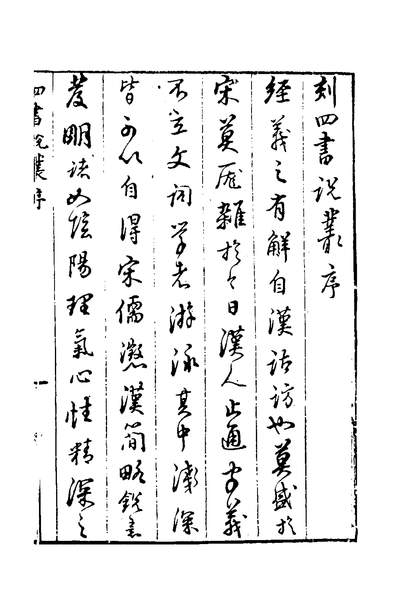 刻四書說叢序
經義之有解自漢詁訪也莫盛於
宋莫厖雜於今日漢人止通字義
不立文詞学者游泳其中淺深
皆可以自得宋儒懲漢簡略銳意
發明諸如陰陽理氣心性精深之
四書說叢序